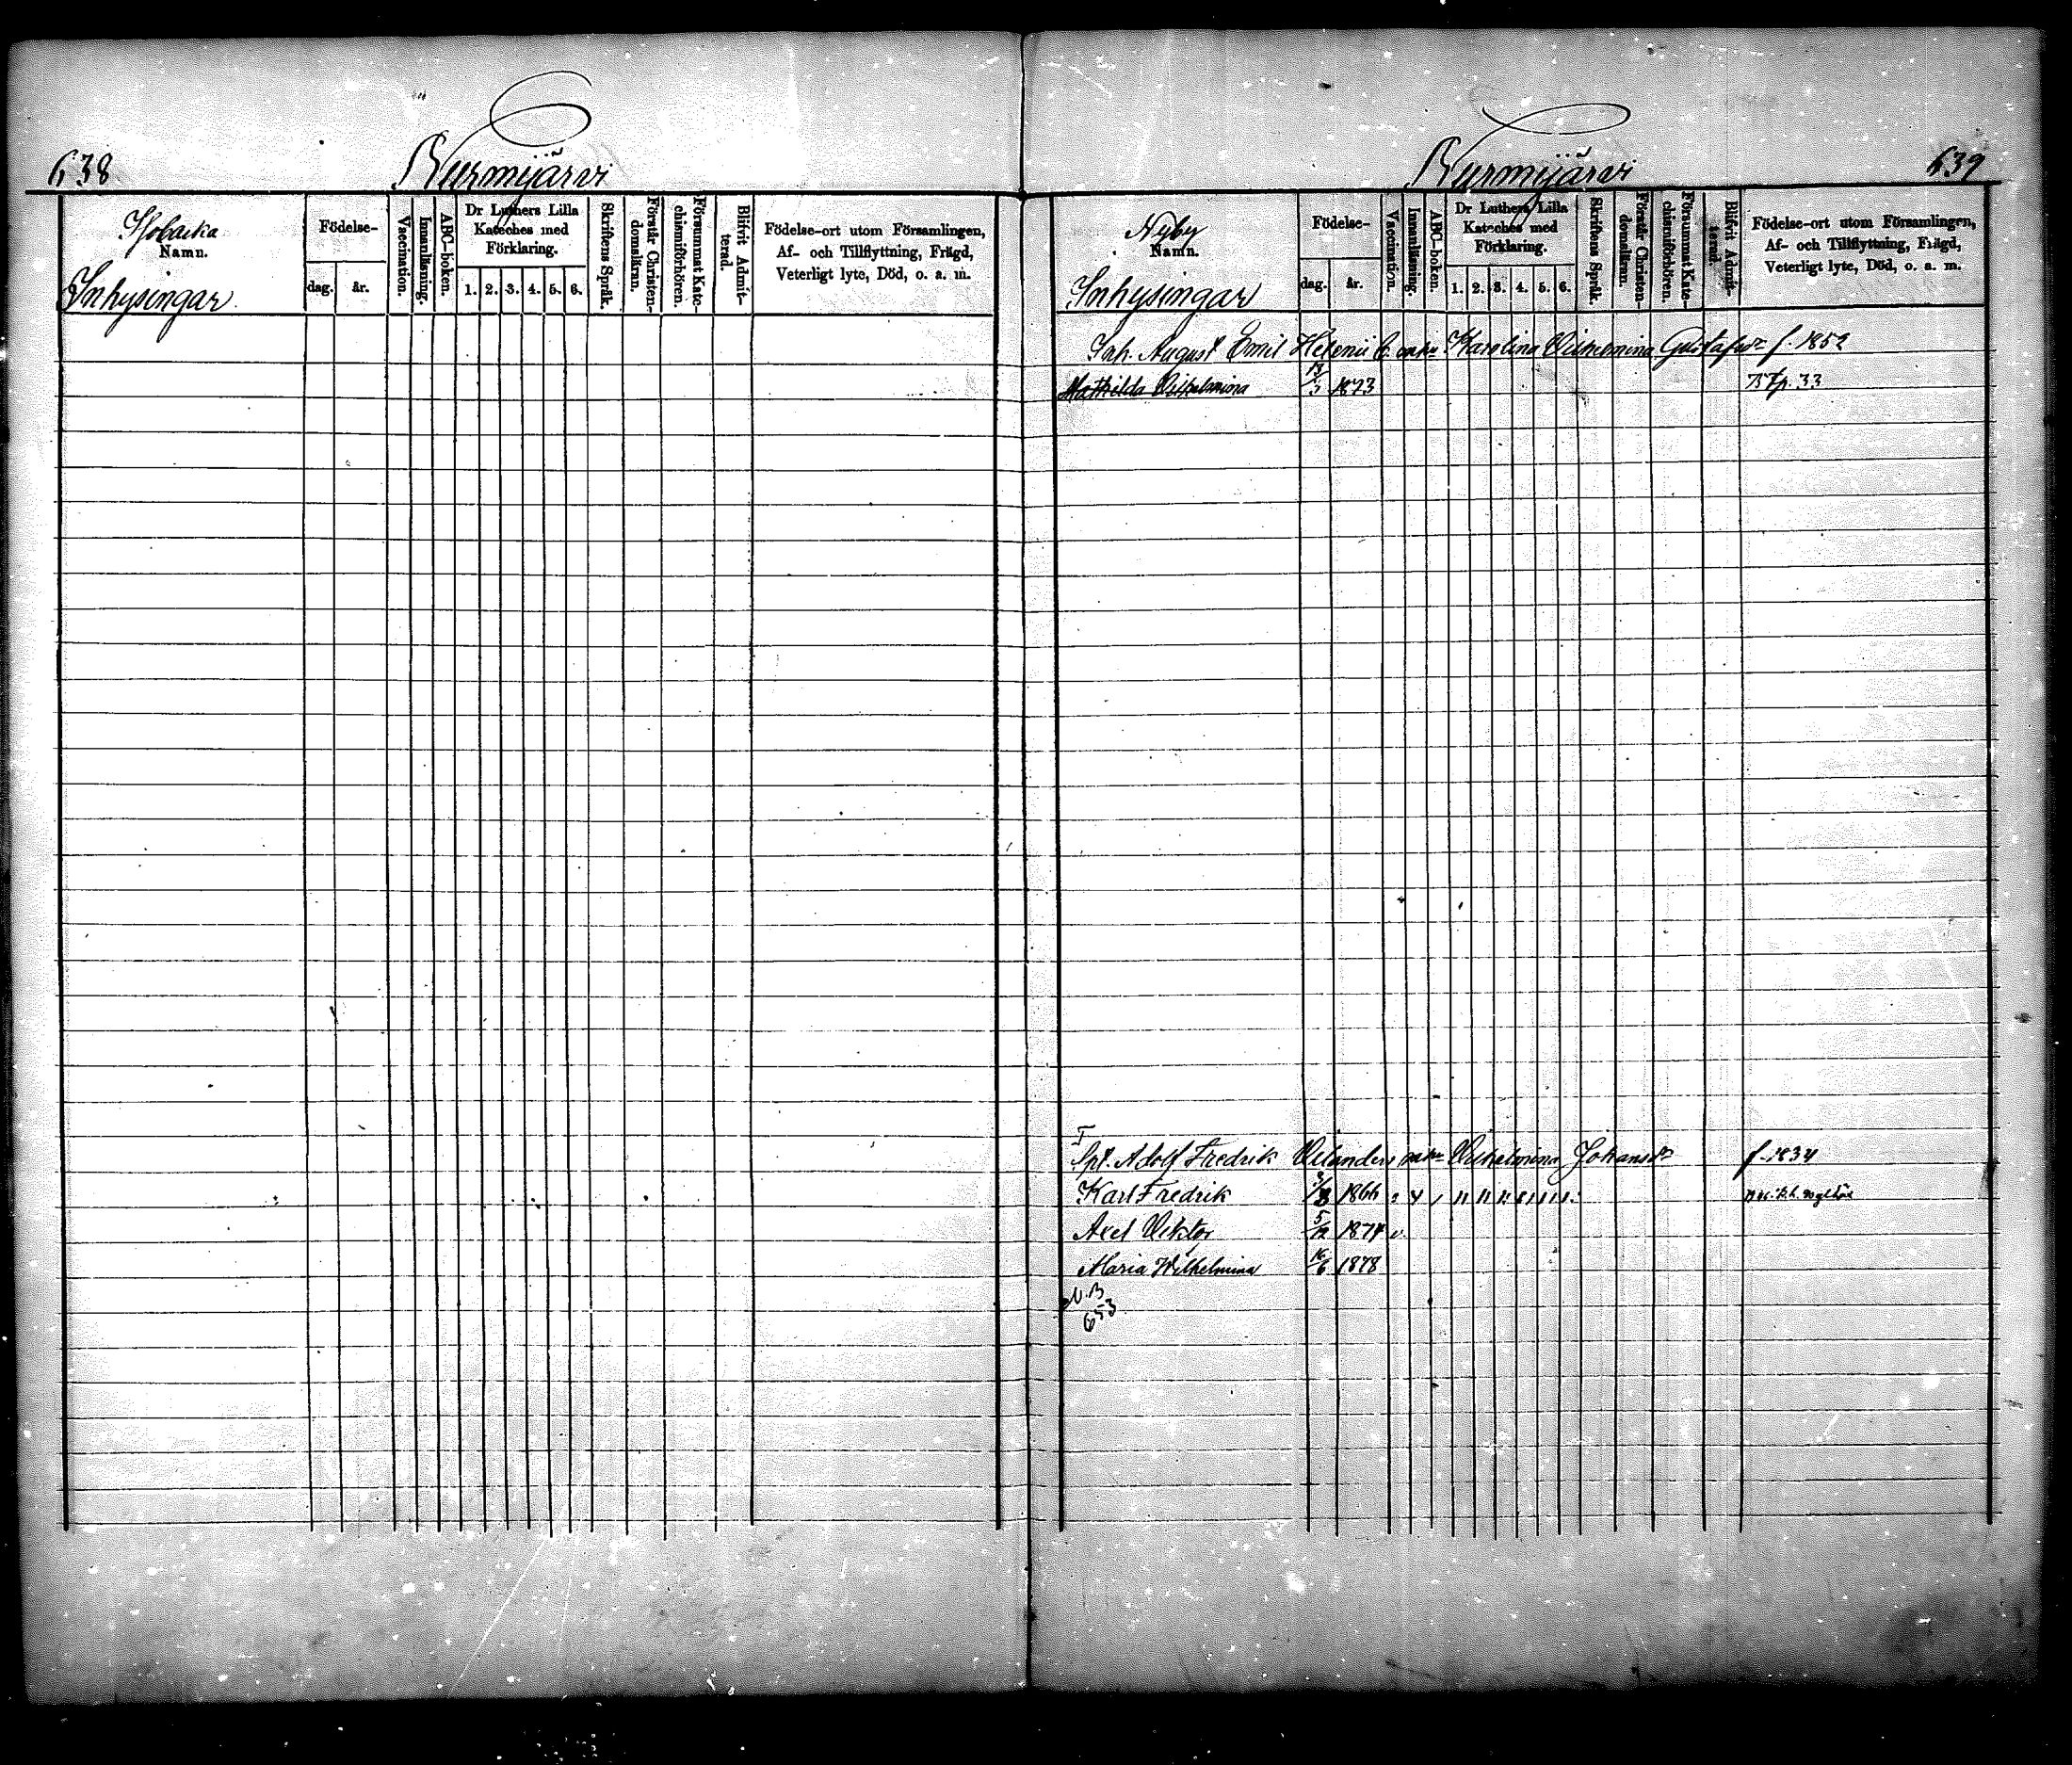 638
Kurmijärvi
Hobacka
Namn.
Inhysingar
Födelse-
dag. år.
Vaccination.
Innanläsning.
ABC-boken.
Dr Luthers Lilla
Kateches med
Förklaring.
1. 2. 3. 4. 5. 6.
Skriftens Språk.
Förstår Christen-
domsläran.
Försummat Kate-
chismiförhören.
Blifvit Admit-
terad.
Födelse-ort utom Församlingen,
Af- och Tillflyttning, Frägd,
Veterligt lyte, Död, o. a. m.
Kurmijärvi
639
Nyby
Namn.
Inhysingar
Födelse-
dag. år.
Vaccination.
Innanläsning.
ABC-boken.
Dr Luthers Lilla
Kateches med
Förklaring.
1. 2. 3. 4. 5. 6.
Skriftens Språk.
Förstår Christen-
domsläran.
Försummat Kate-
chismiförhören.
Blifvit Admit-
terad.
Födelse-ort utom Församlingen,
Af- och Tillflyttning, Frägd,
Veterligt lyte, Död, o. a. m.
Inh. August Emil Helenii Karolina Vilhelmina Gustafsdr f. 1852
Mathilda Vilhelmina 13/3 1873 p. 33
Adolf Fredrik Vilanders Vilhelmina Johansdr f. 1834
Karl Fredrik 1866
Axel Viktor 5/12 1874 v.
Maria Wilhelmina 16/6 1878
N.B
653